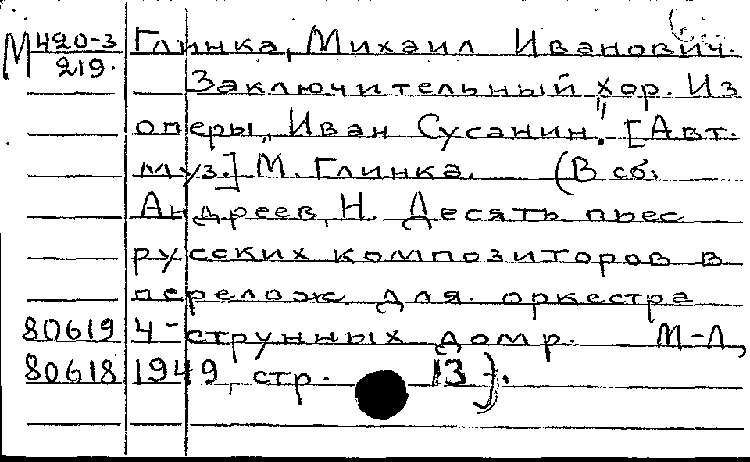 М 420-3
219.
Глинка, Михаил Иванович.
Заключительный хор. Из
оперы „Иван Сусанин". [Авт.
муз.] М. Глинка. (В сб:
Андреев, Н. Десять пьес
русских композиторов в
перелож для оркестра
80619 4-струнных домр. М-Л,
80618 1949, стр. 13).